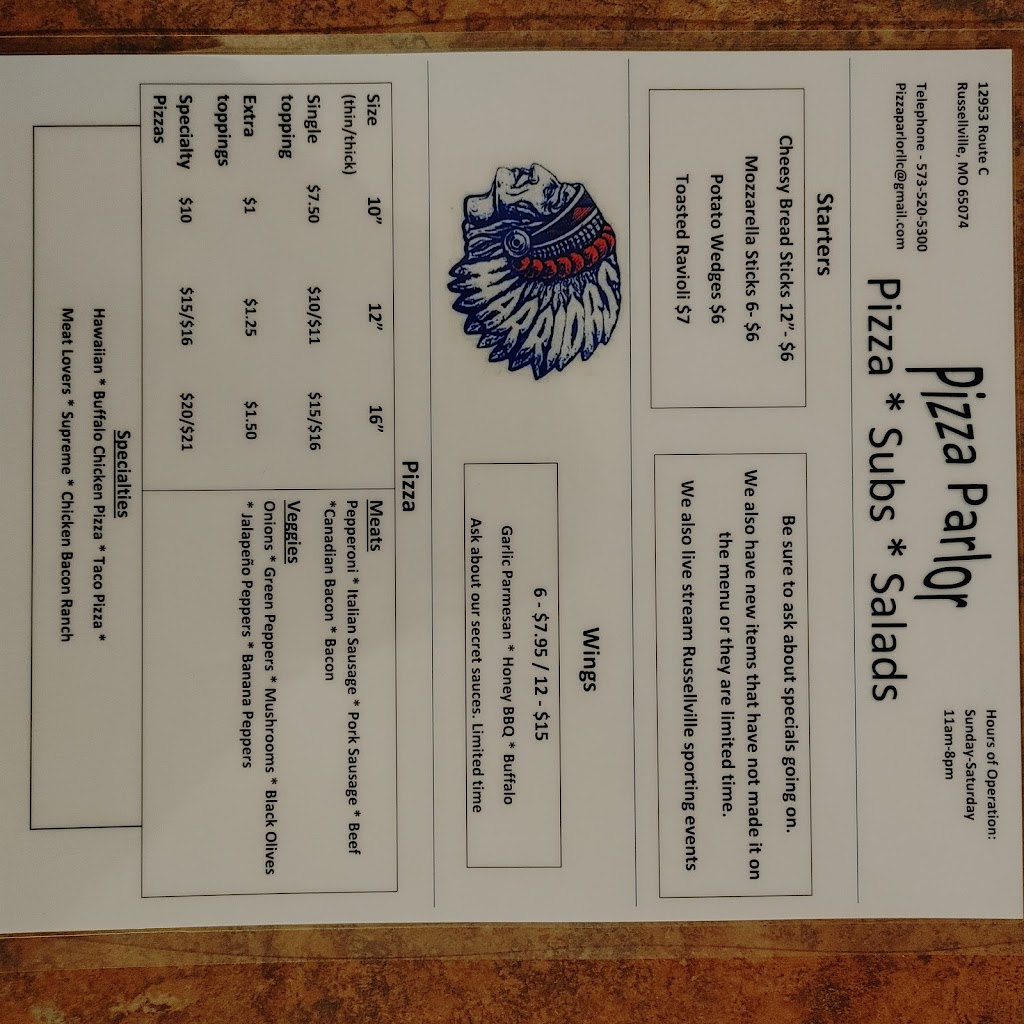 12953 Route C
Russellville, MO 65074
Telephone - 573-520-5300
Pizzaparlorllc@gmail.com
Pizza Parlor
Pizza * Subs * Salads
Hours of Operation:
Sunday-Saturday
11am-8pm
Starters
Cheesy Bread Sticks 12”- $6
Mozzarella Sticks 6- $6
Potato Wedges $6
Toasted Ravioli $7
Be sure to ask about specials going on.
We also have new items that have not made it on
the menu or they are limited time.
We also live stream Russellville sporting events
WARRIORS
Wings
6 - $7.95 / 12 - $15
Garlic Parmesan * Honey BBQ * Buffalo
Ask about our secret sauces. Limited time
Pizza
Size 10” 12” 16”
(thin/thick)
Single $7.50 $10/$11 $15/$16
topping
Extra $1 $1.25 $1.50
toppings
Specialty $10 $15/$16 $20/$21
Pizzas
Meats
Pepperoni * Italian Sausage * Pork Sausage * Beef
*Canadian Bacon * Bacon
Veggies
Onions * Green Peppers * Mushrooms * Black Olives
* Jalapeño Peppers * Banana Peppers
Specialties
Hawaiian * Buffalo Chicken Pizza * Taco Pizza *
Meat Lovers * Supreme * Chicken Bacon Ranch